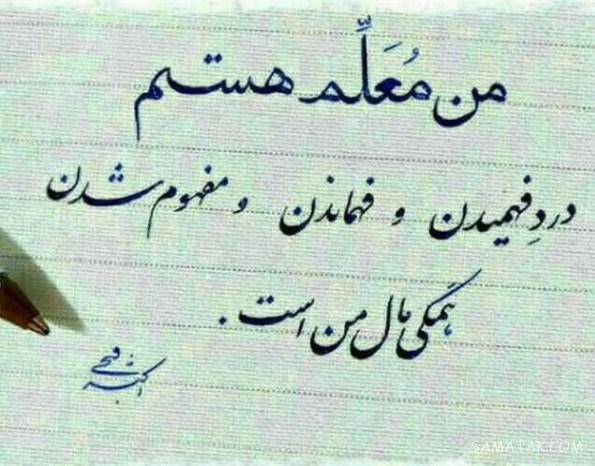 من مُعَلِّم هستم
دردِ فهمیدن و فهماندن و مفهوم شدن
همگی مال من است.
SAMATAK.COM